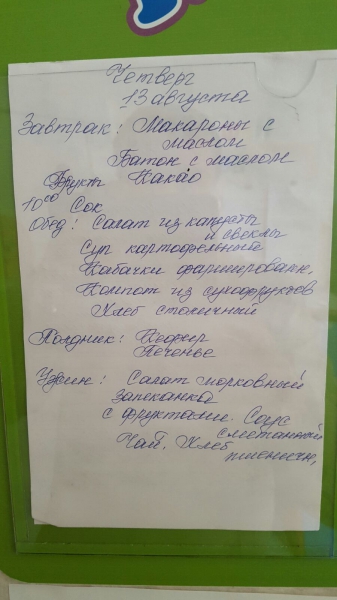 Четверг
13 августа
Завтрак: Макароны с
маслом
Батон с маслом
Фрукты Какао
10⁰⁰ Сок
Обед: Салат из капусты
и свеклы
Суп картофельный
Кабачки фаршированн.
Компот из сухофруктов
Хлеб столичный
Полдник: Кефир
Печенье
Ужин: Салат морковный
Запеканка
с фруктами. Соус
сметанный
Чай. Хлеб
пшеничн.